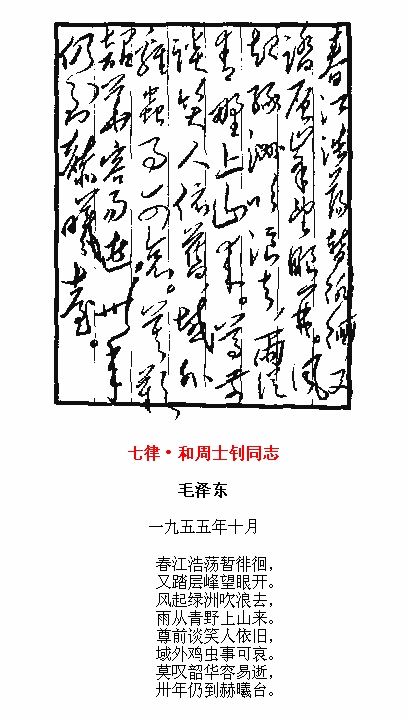 春江浩蕩暫徘徊又
踏層峯望眼開。風
起綠洲吹浪去，雨從
青野上山來。尊前
談笑人依舊，域外
雞蟲事可哀。莫歎
韶華容易逝，卅年
仍到赫曦臺。
七律·和周士钊同志
毛泽东
一九五五年十月
春江浩荡暂徘徊，
又踏层峰望眼开。
风起绿洲吹浪去，
雨从青野上山来。
尊前谈笑人依旧，
域外鸡虫事可哀。
莫叹韶华容易逝，
卅年仍到赫曦台。